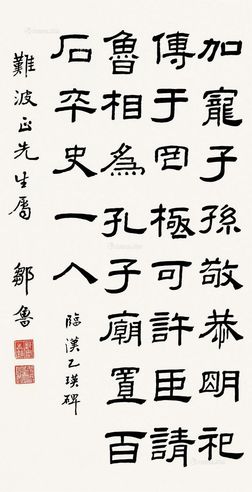 加寵子孫敬恭明祀
傳于罔極可許臣請
魯相為孔子廟置百
石卒史一人
臨漢乙瑛碑
難波正先生屬 鄒魯